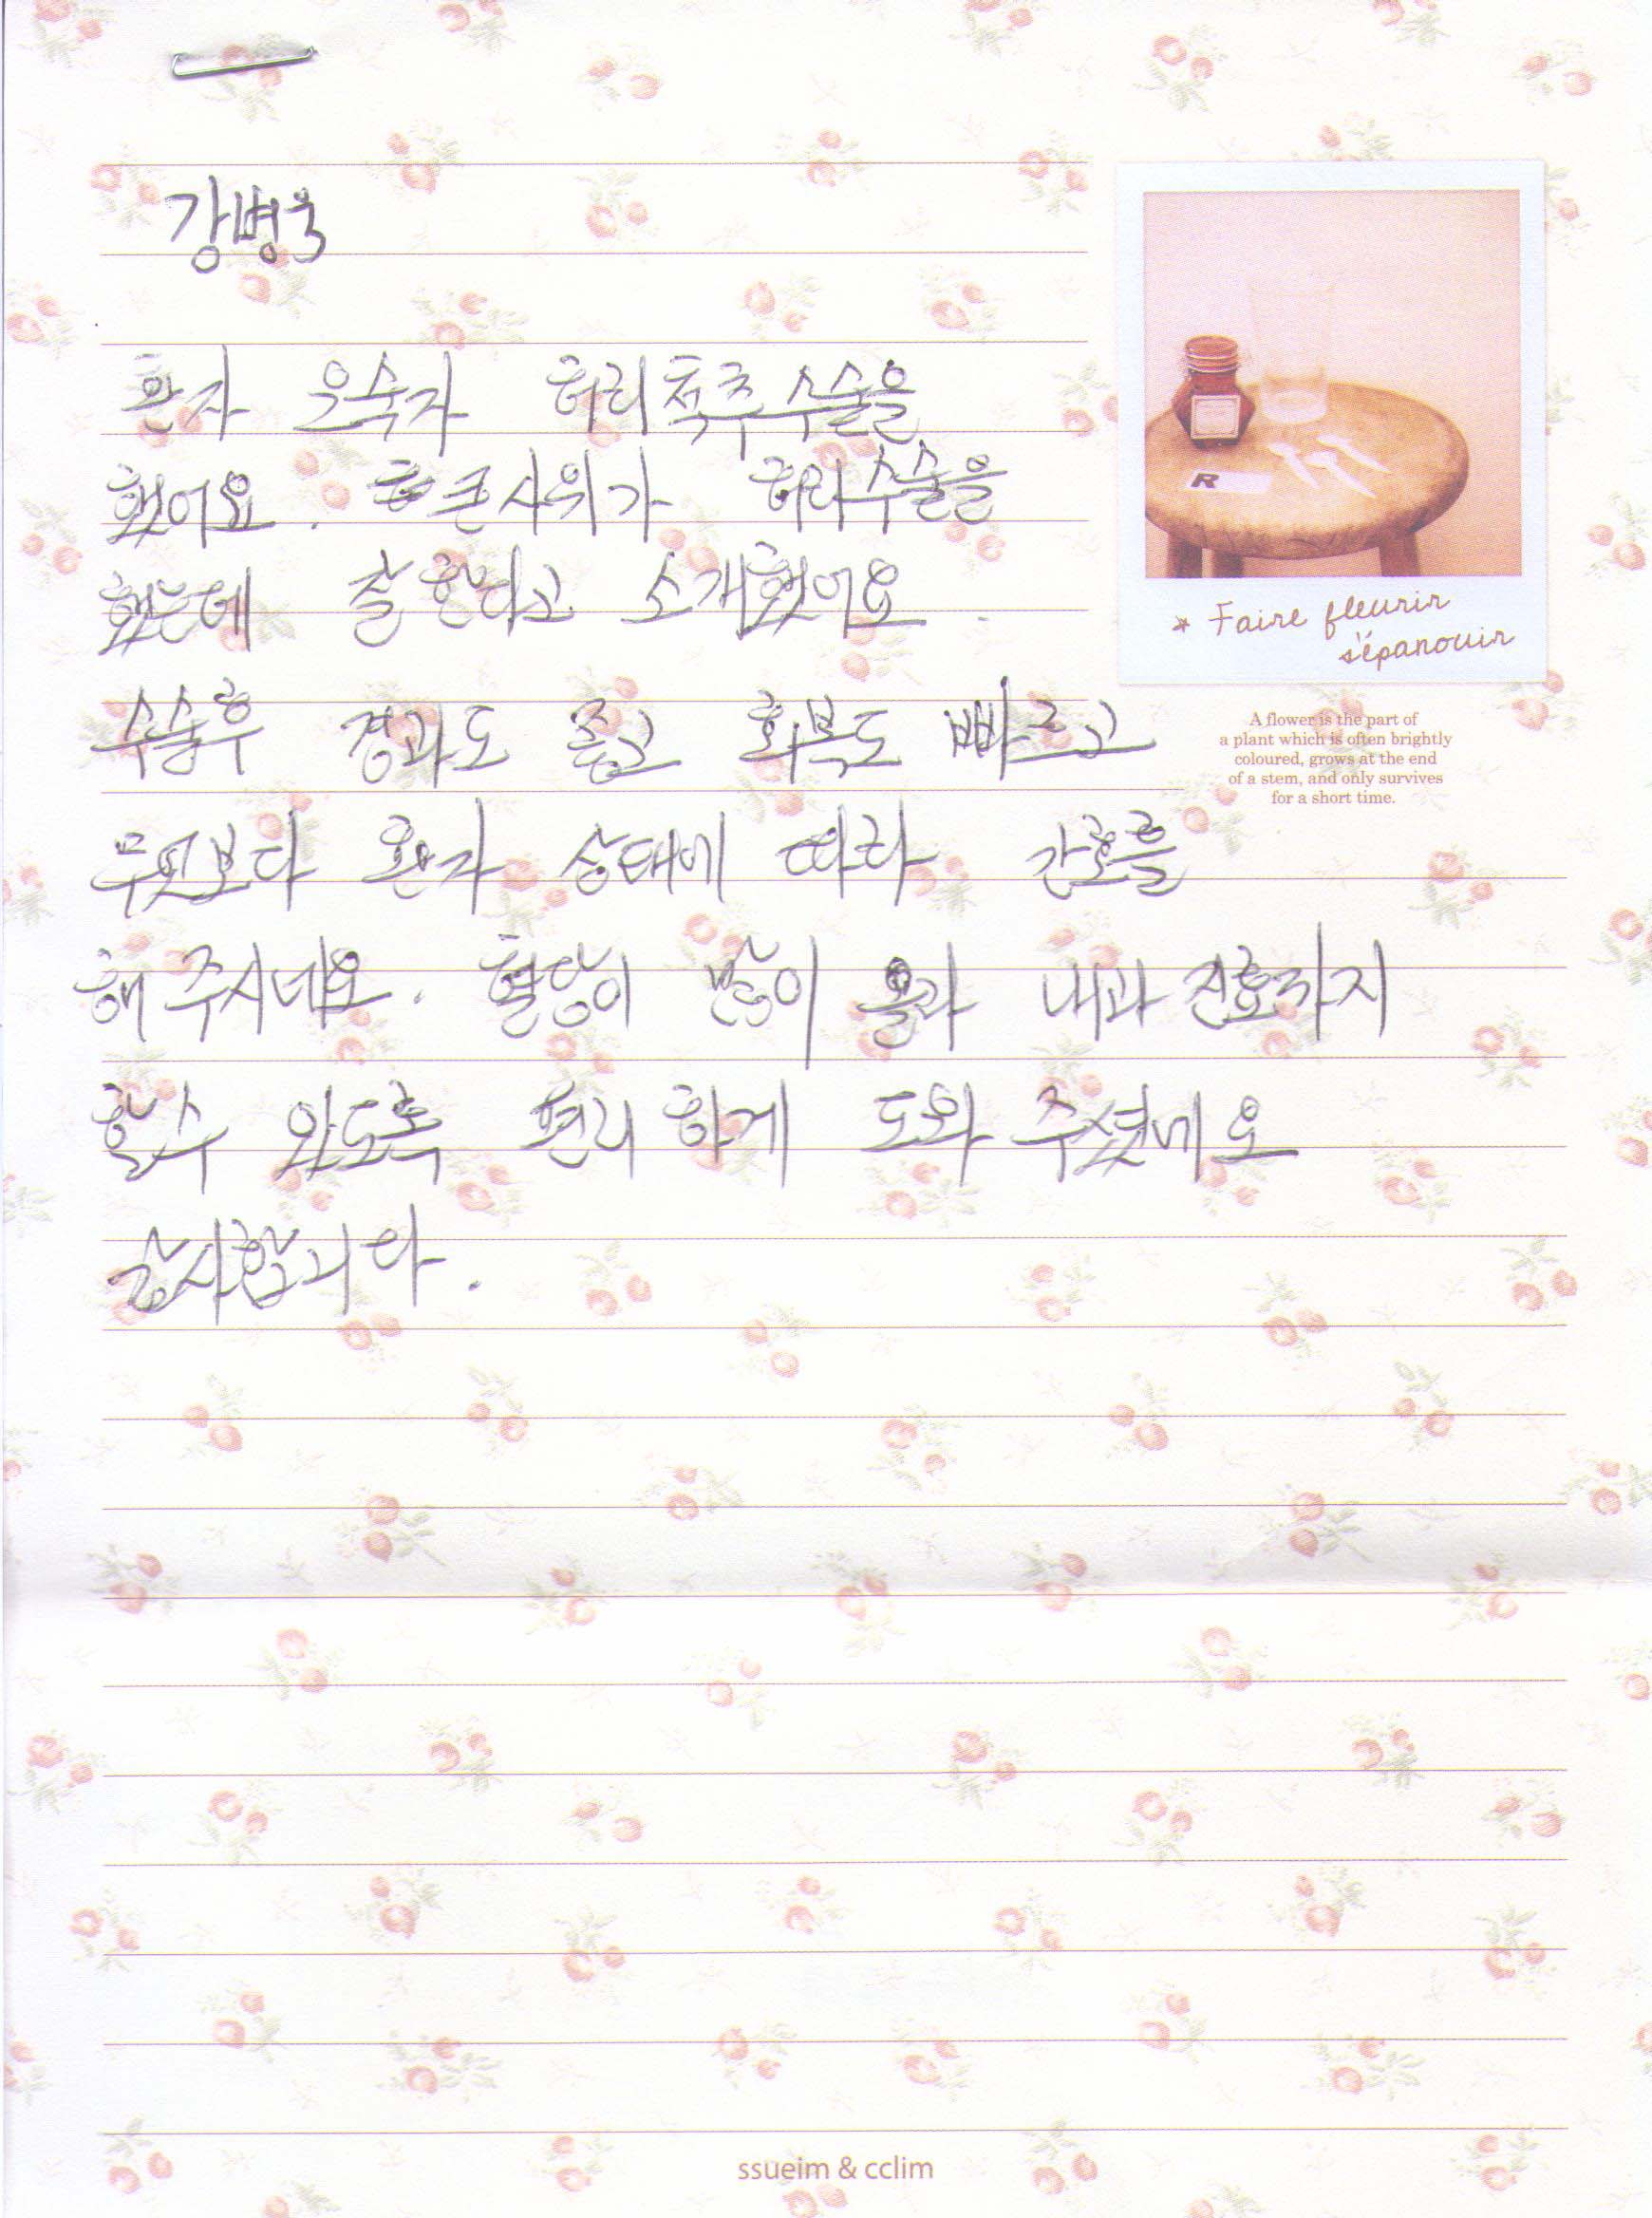 강병욱
환자 우숙자 허리척추수술을
했어요. 큰사위가 허리수술을
했는데 잘 한다고 소개했어요.
수술후 경과도 좋고 회복도 빠르고
무엇보다 환자 상태에 따라 간호를
해 주시네요. 혈당이 많이 올라 내과 진료까지
할수 있도록 편리 하게 도와 주셨네요
감사합니다.
R
* Faire fleurir
s'épanouir
A flower is the part of
a plant which is often brightly
coloured, grows at the end
of a stem, and only survives
for a short time.
ssueim & cclim